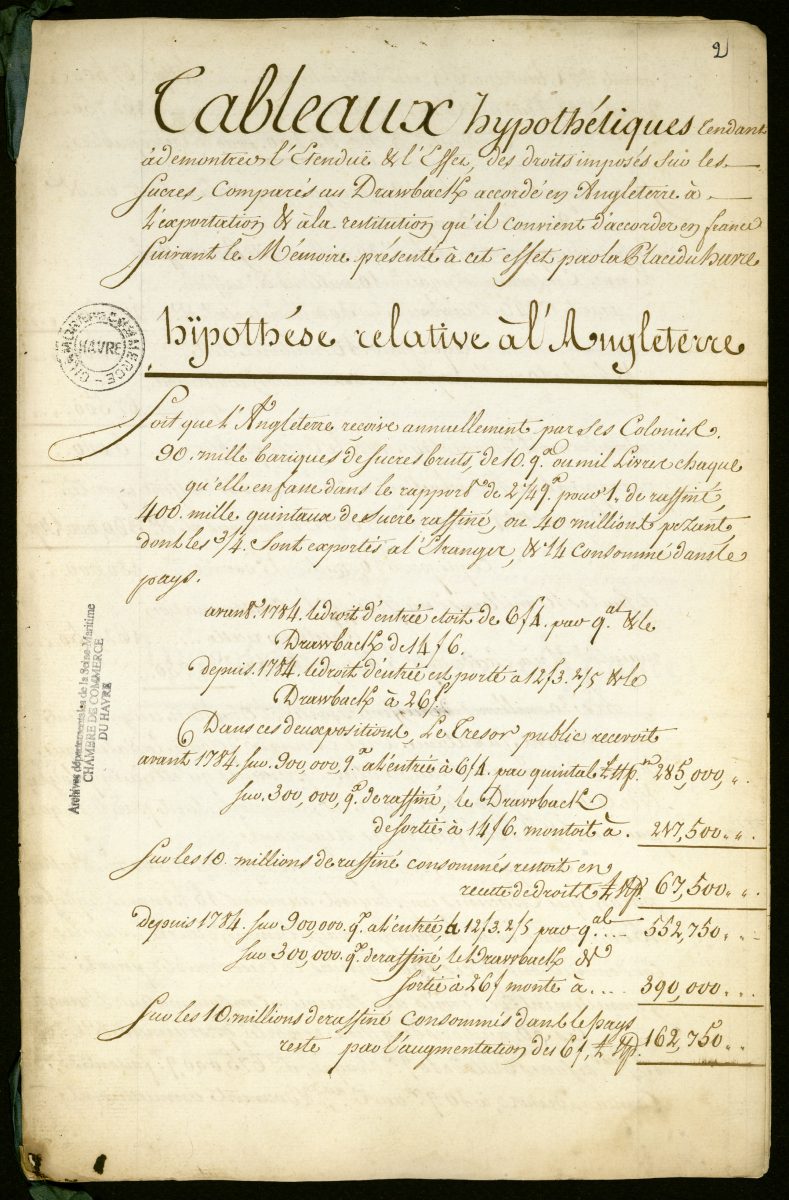 2
Tableaux hypothétiques tendant
à demontrer l'Etenduë & l'Effet, des droits imposés sur les
sucres, comparés au Drawback accordé en Angleterre à
l'exportation & à la restitution qu'il convient d'accorder en france
suivant le Mémoire présenté à cet effet par la Place du havre
CHAMBRE DE COMMERCE
HAVRE
hÿpothése relative à l'Angleterre
Soit que l'Angleterre reçoive annuellement par ses Colonies.
90. mille bariques de sucres bruts, de 10. qx. ou mil Livres chaque
qu'elle en fasse dans le rapport de 2 1/4 qx. pour 1. de raffiné,
400. mille quintaux de sucre raffiné, ou 40 millions pezant,
dont les 3/4. sont exportés a l'Etranger, & 1/4 consommé dans le
pays.
avant 1784. le droit d'entrée etoit de 6/4. par qal. & le
Drawback de 14/6.
depuis. 1784. le droit d'entrée est porté a 12/3. 2/5 & le
Drawback à 26/.
Dans ces deux positions, Le Tresor public recevoit
avant 1784. sur. 900,000, qx. a l'entrée à 6/4. par quintal 285,000,
sur. 300,000, qx. de raffiné, le Drawback
de sortie à 14/6. montoit à. 217,500
Sur les 10. millions de raffiné consommés restoit en
recette de droits 67,500
Depuis 1784. sur 900,000. qx. a l'entrée à 12/3. 2/5 par qal. .... 552,750
sur 300,000. qx. de raffiné, le Drawback de
sortie à 26/ monte à .... 390,000
Sur les 10. millions de raffiné consommés dans le pays
reste par l'augmentation des 6/, 162,750
Archives départementales de la Seine-Maritime
CHAMBRE DE COMMERCE
DU HAVRE